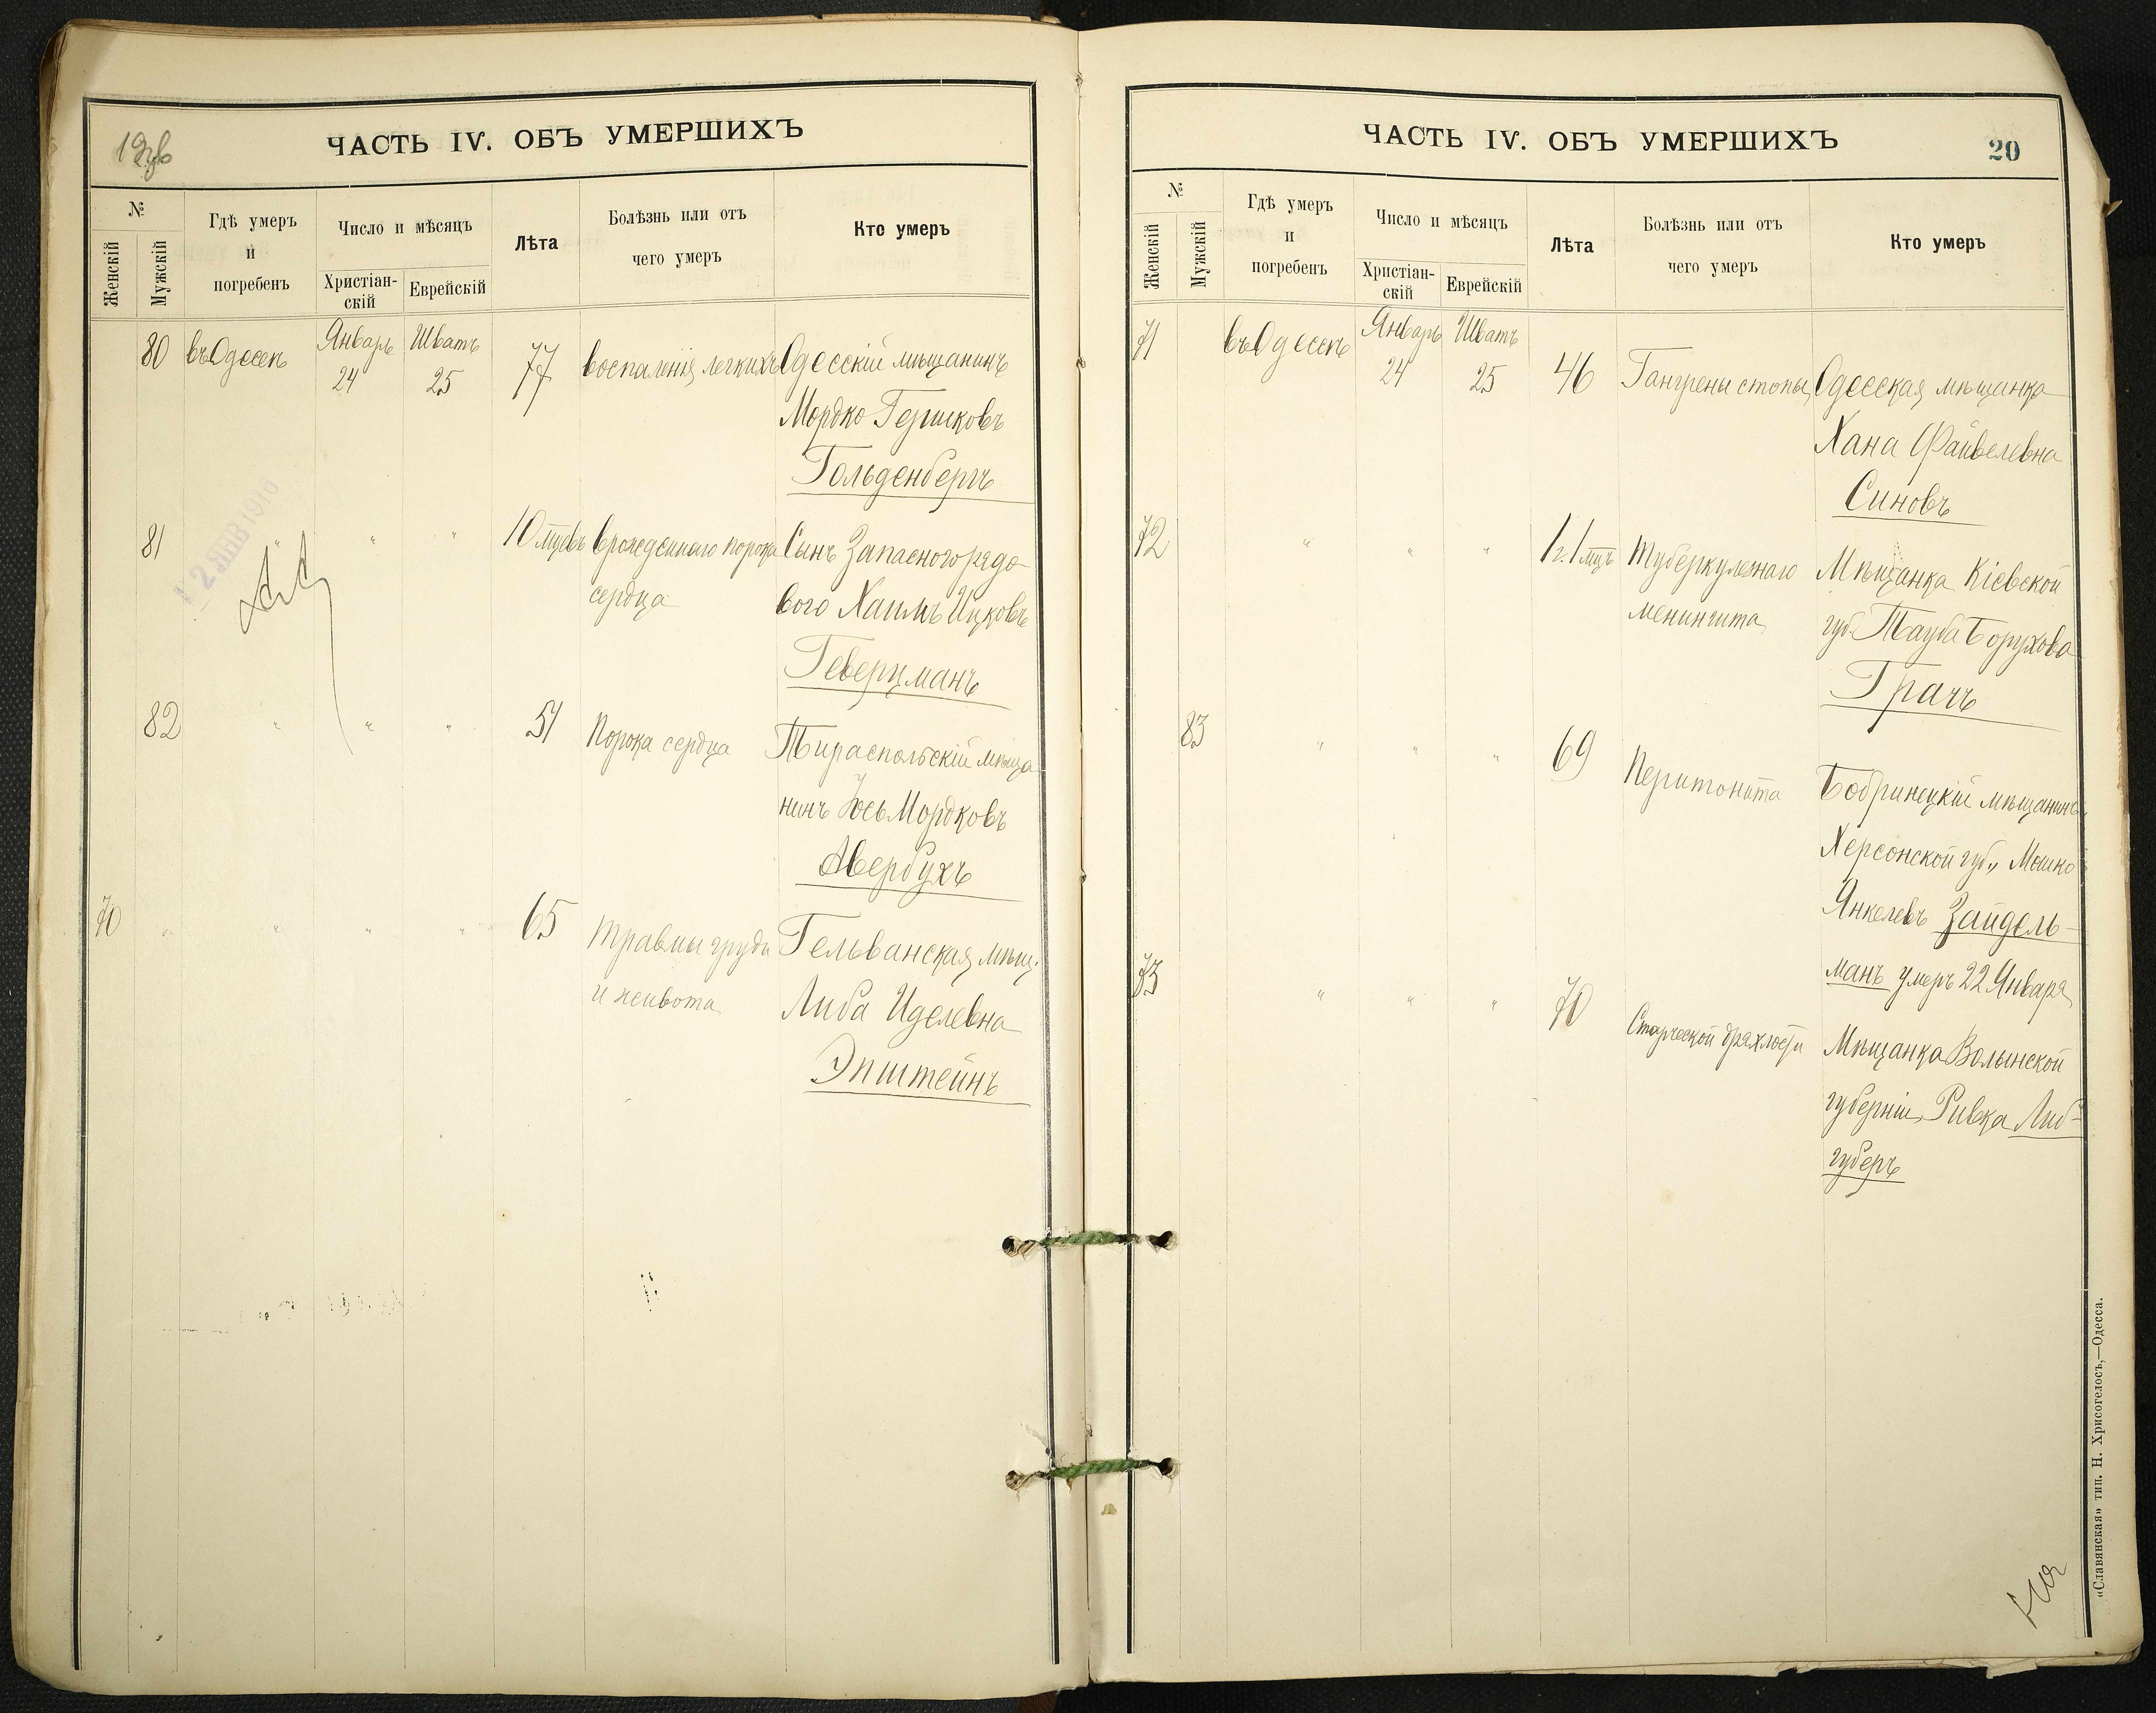 19об
ЧАСТЬ IV. ОБЪ УМЕРШИХЪ
№
Женскій
Мужскій
Гдѣ умеръ
и
погребенъ
Число и мѣсяцъ
Христіан-
скій
Еврейскій
Лѣта
Болѣзнь или отъ
чего умеръ
Кто умеръ
80 въ Одессѣ Январь 24 Шватъ 25 77 воспаленія легкихъ Одесскій мѣщанинъ
Мордко Гершковъ
Гольденбергъ
12 ЯНВ 1916
81 " " " 10 мцевъ врожденнаго порока Сынъ Запасного рядо-
сердца вого Хаимъ Ицковъ
Геверцманъ
82 " " " 51 Порока сердца Тираспольскій мѣща
нинъ Іось Мордковъ
Авербухъ
70 " " " " 65 травмы груди Гельванская мѣщ.
и живота Либа Иделевна
Эпштейнъ
ЧАСТЬ IV. ОБЪ УМЕРШИХЪ
20
№
Женскій
Мужскій
Гдѣ умеръ
и
погребенъ
Число и мѣсяцъ
Христіан-
скій
Еврейскій
Лѣта
Болѣзнь или отъ
чего умеръ
Кто умеръ
71 въ Одессѣ Январь 24 Шватъ 25 46 Гангрены стопы Одесская мѣщанка
Хана Файвелевна
Синовъ
72 " " " 1 г. 1 мцъ Туберкулезнаго Мѣщанка Кіевской
менингита губ. Тауба Борухова
Грачъ
83 " " " 69 Перитонита Бобринецкій мѣщанинъ
Херсонской губ., Мошко
Янкелевъ Зайдель-
манъ умеръ 22 Января
73 " " " 70 Старческой дряхлости Мѣщанка Волынской
губерніи, Ривка Либ-
губеръ
«Славянская» тип. Н. Хрисогелосъ,—Одесса.